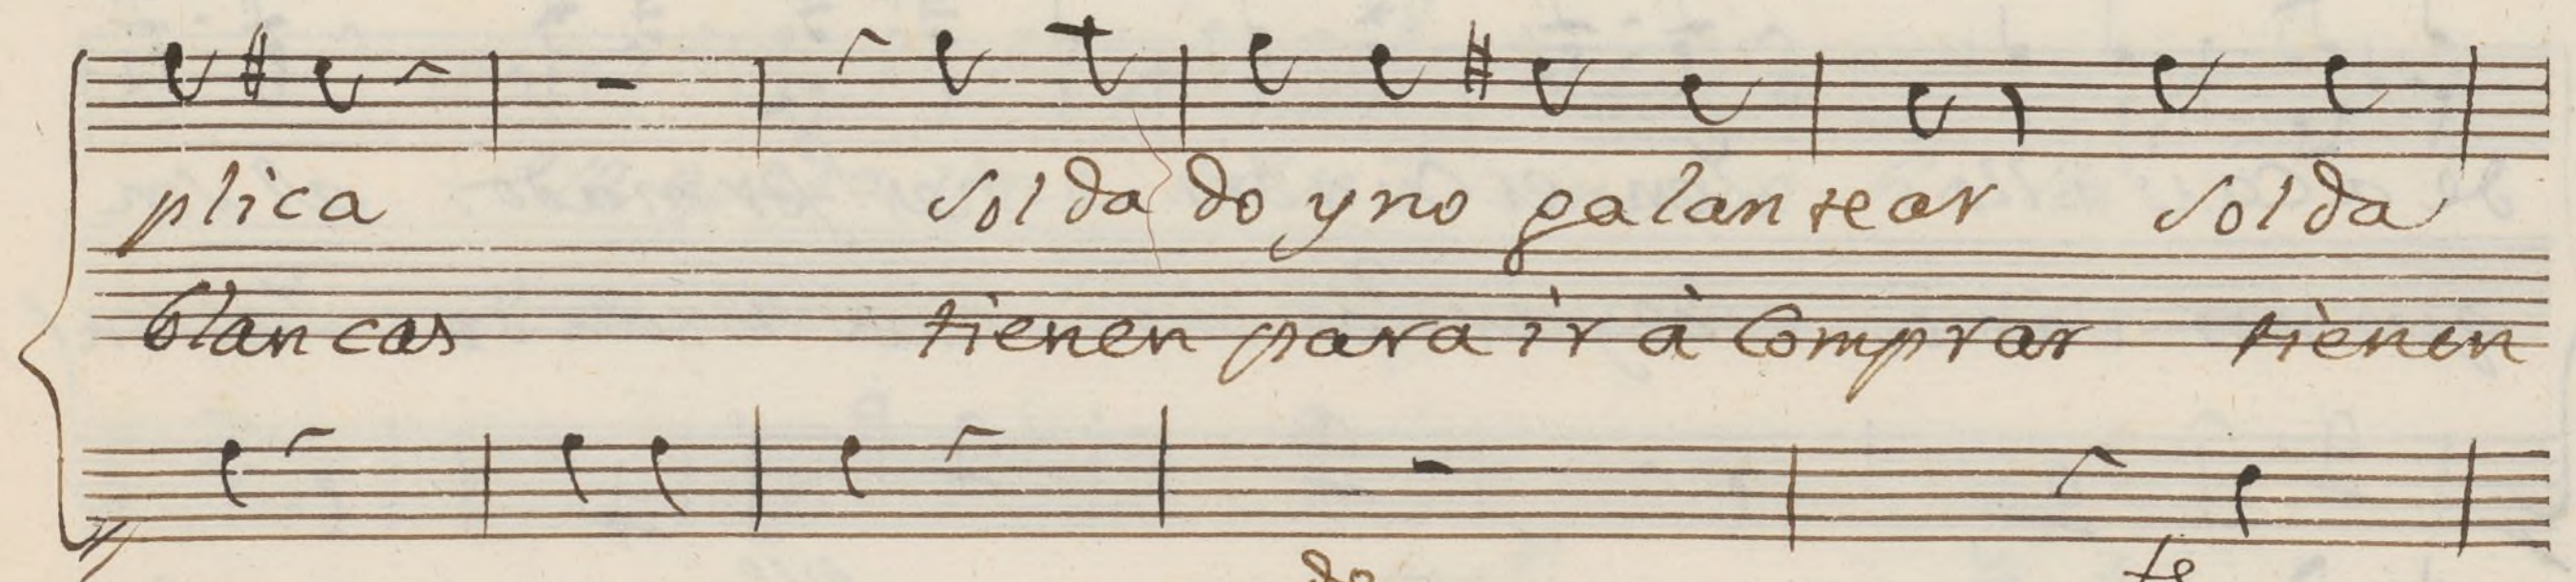 plica solda do y no galantear solda
blancas tienen para ir à Comprar tienen
do te